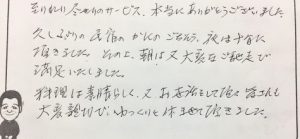 至れり尽せりのサービス、本当にありがとうございました。
久しぶりの民宿のかにのごちそう、夜は十分に
頂きました。その上、朝は又大変なご馳走で
満足いたしました。
料理は素晴らしく、又お世話をして頂く皆さんも
大変親切で、ゆっくりと休ませて頂きました。